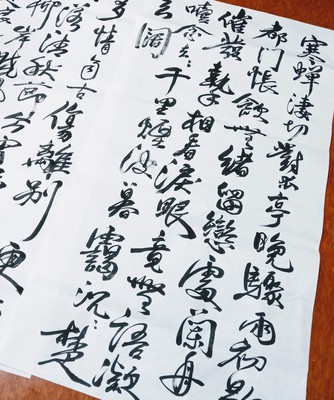 寒蟬淒切對長亭晚驟雨初歇
都門帳飲無緒留戀處蘭舟
催發執手相看淚眼竟無語凝
噎念去々千里煙波暮靄沉々楚
天闊
多情自古傷離別更
落清秋節今宵
柳岸曉